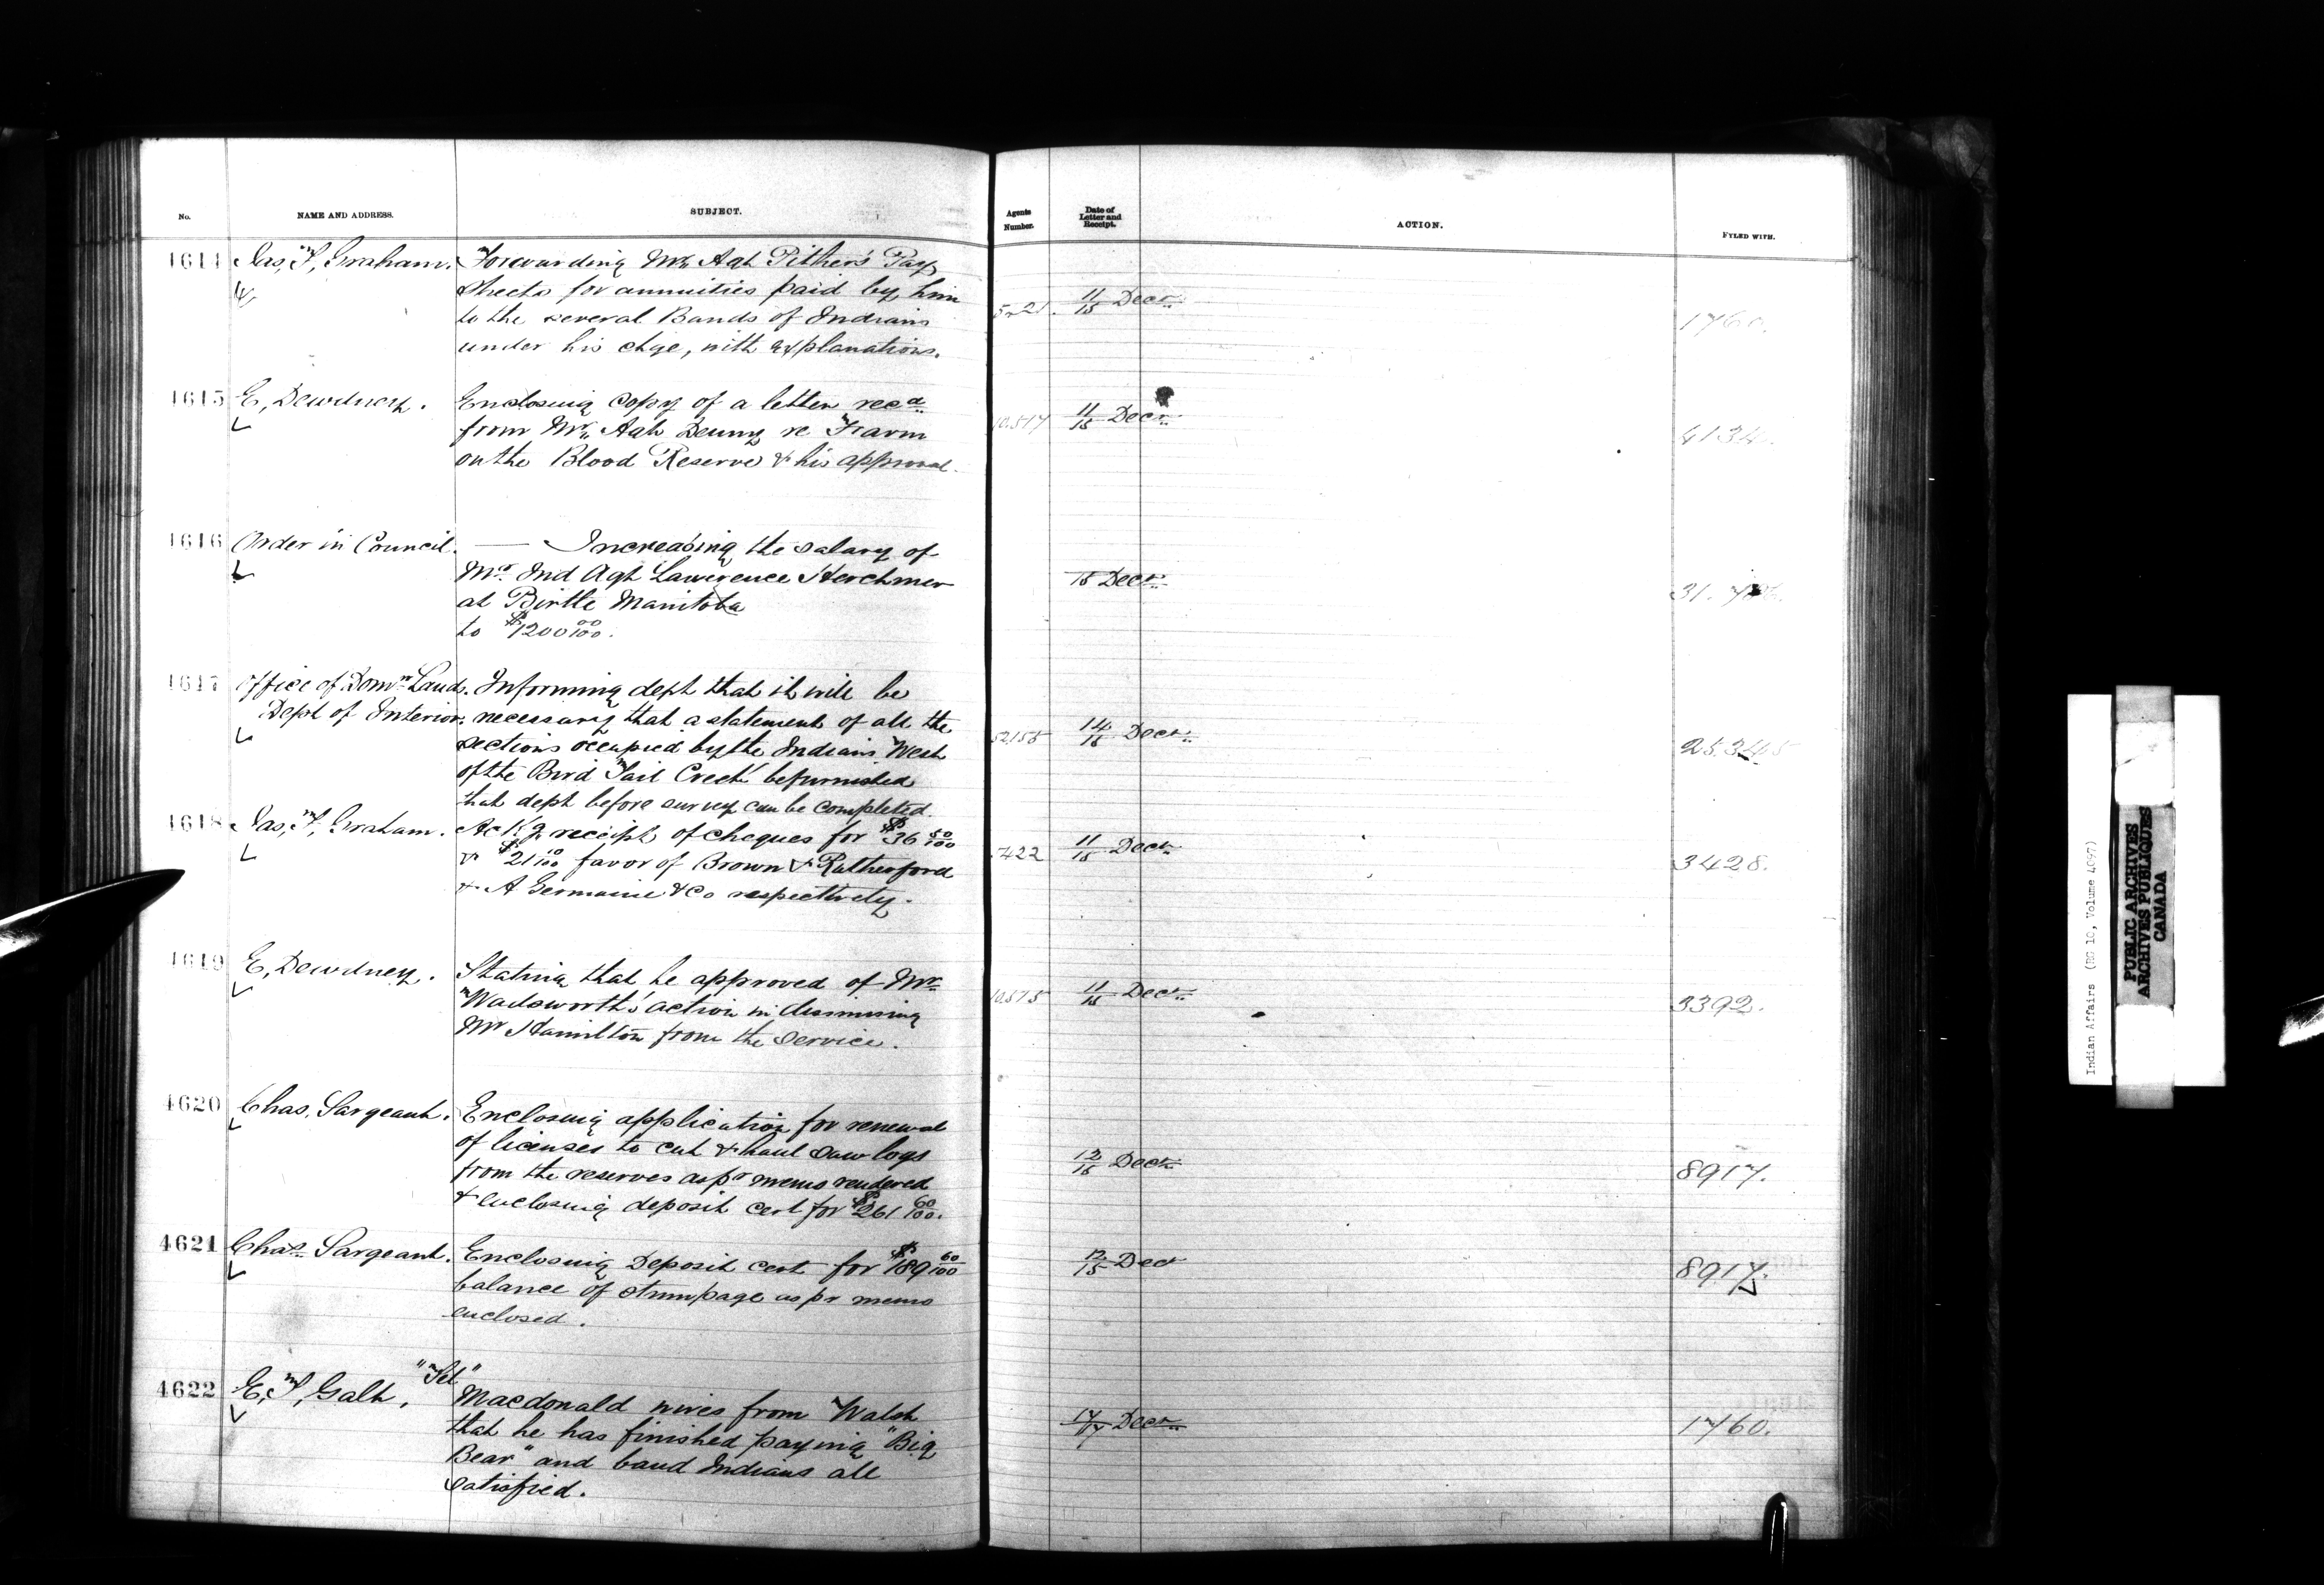 No.
NAME AND ADDRESS.
SUBJECT.
Agents Number.
Date of Letter and Receipt.
ACTION.
FYLED WITH.
4614 Jas, F, Graham. Forwarding Mr Agt Pither's Pay
Sheets for annuities paid by him
to the several Bands of Indians
under his chge, with explanations.
11/15 Decr
1760.
4615 E, Dewdney. Enclosing copy of a letter recd
from Mr Agt Denny re Farm
on the Blood Reserve & his approval.
10.517 11/15 Decr
4134.
4616 Order in Council. — Increasing the salary of
Mr Ind Agt Lawerence Herchmer
at Birtle Manitoba
to $1200 00/100.
15 Decr
31.
4617 Office of Domn Lands. Informing dept that it will be
Dept of Interior. necessary that a statement of all the
sections occupied by the Indians West
of the Bird Tail Creek be furnished
that dept before survey can be completed.
52155 14/15 Decr
25.345
4618 Jas, F, Graham. Ackg receipt of cheques for $36 50/100
& $21 10/100 favor of Brown & Rutherford
& A Germaine & Co respectively.
422 11/15 Decr
3428.
4619 E, Dewdney. Stating that he approved of Mr
Wadsworth's action in dismissing
Mr Hamilton from the service.
10.575 11/15 Decr
3392.
4620 Chas. Sargeant. Enclosing application for renewal
of licenses to cut & haul saw logs
from the reserves as pr memo rendered
& enclosing deposit cert for $261 60/100.
12/15 Decr
8917.
4621 Chas. Sargeant. Enclosing Deposit cert for $189 60/100
balance of stumpage as pr memo
enclosed.
12/15 Dec
8917.
4622 E, T, Galt, "Tel"
Macdonald wires from Walsh
that he has finished paying "Big
Bear" and band Indians all
satisfied.
17/17 Decr
1760.
Indian Affairs (RG 10, Volume 4097)
PUBLIC ARCHIVES
ARCHIVES PUBLIQUES
CANADA